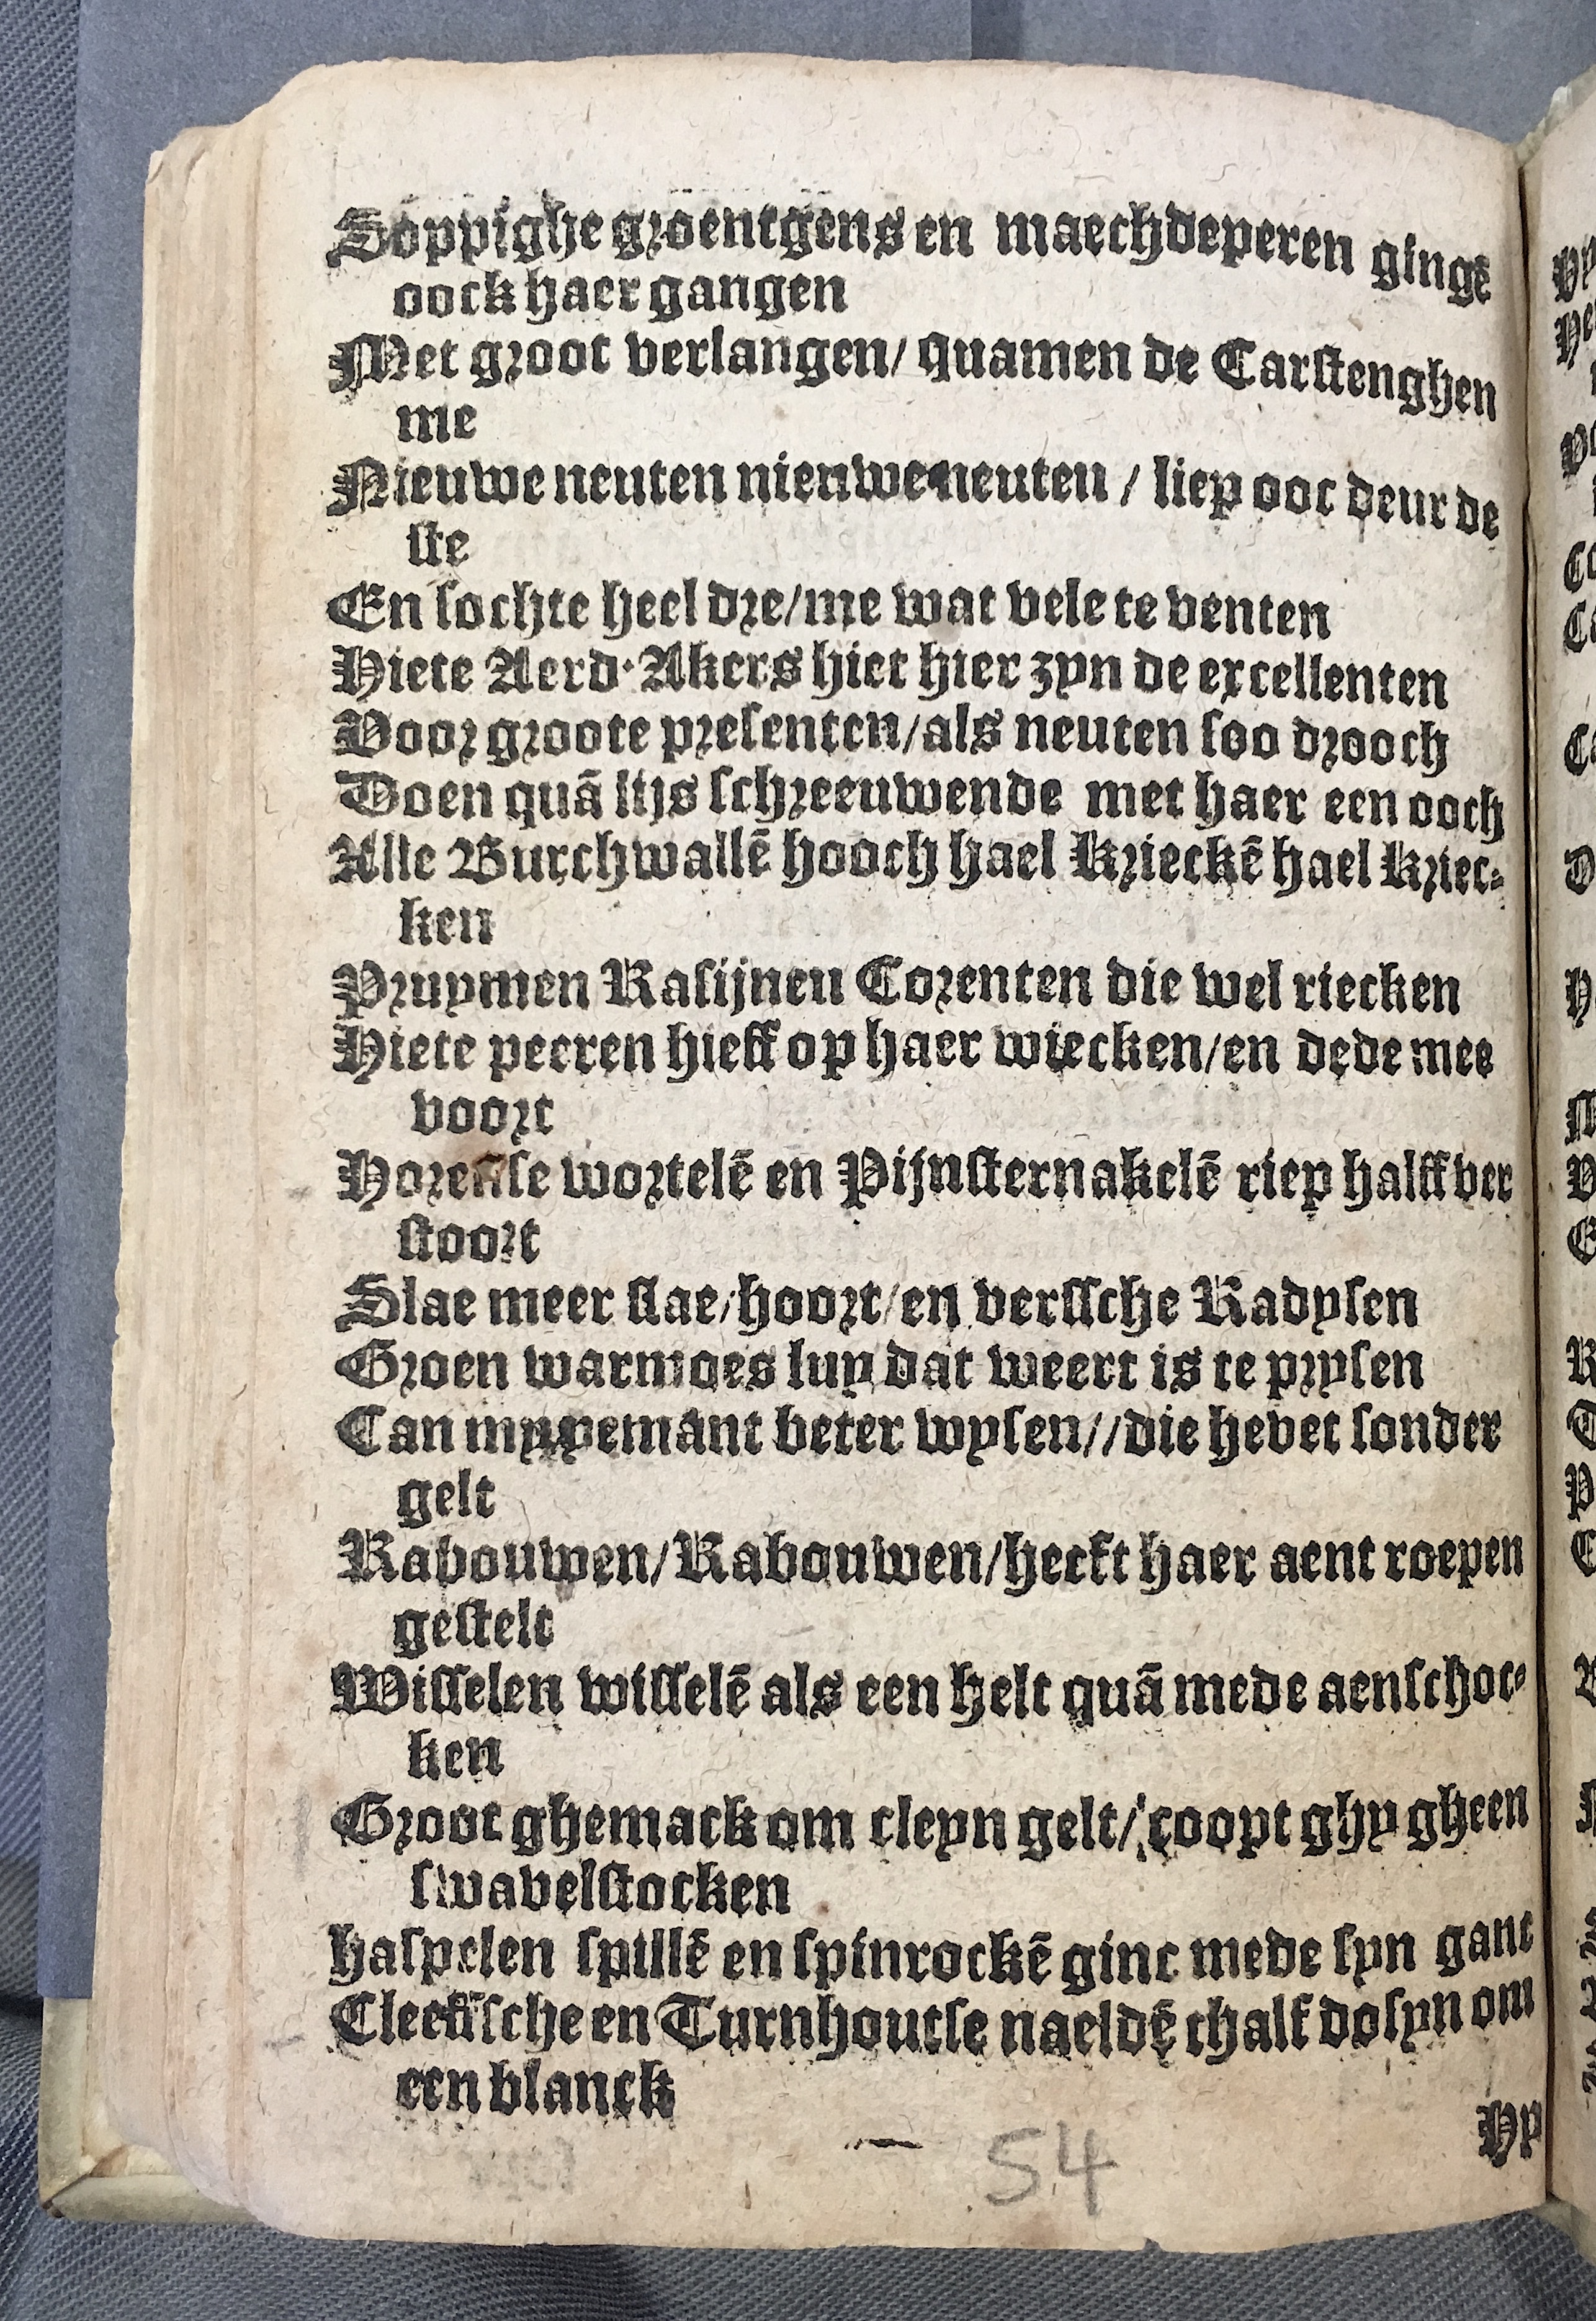 Soppighe groentgens en maechdeperen gingē
oock haer gangen
Met groot verlangen/ quamen de Carstenghen
me
Nieuwe neuten nieuwe neuten / liep ooc deur de
ste
En sochte heel dre/me wat vele te venten
Hiete Aerd-Akers hiet hier zyn de excellenten
Voor groote presenten/als neuten soo drooch
Doen quā lijs schreeuwende met haer een ooch
Alle Burchwallē hooch hael Krieckē hael Kriec-
ken
Pruymen Rasijnen Corenten die wel riecken
Hiete peeren hieff op haer wiecken/en dede mee
voort
Horense wortelē en Pijnsternakelē riep halff ver
stoort
Slae meer slae/hoort/en verssche Radysen
Groen warmoes luy dat weert is te prysen
Can my yemant beter wysen//die hevet sonder
gelt
Rabouwen/Rabouwen/heeft haer aent roepen
gestelt
Wisselen wisselē als een helt quā mede aenschoc-
ken
Groot ghemack om cleyn gelt/ coopt ghy gheen
swavelstocken
haspelen spillē en spinrockē ginc mede syn ganc
Cleeffsche en Turnhoutse naeldē thalf dosyn om
een blanck
Hy
54